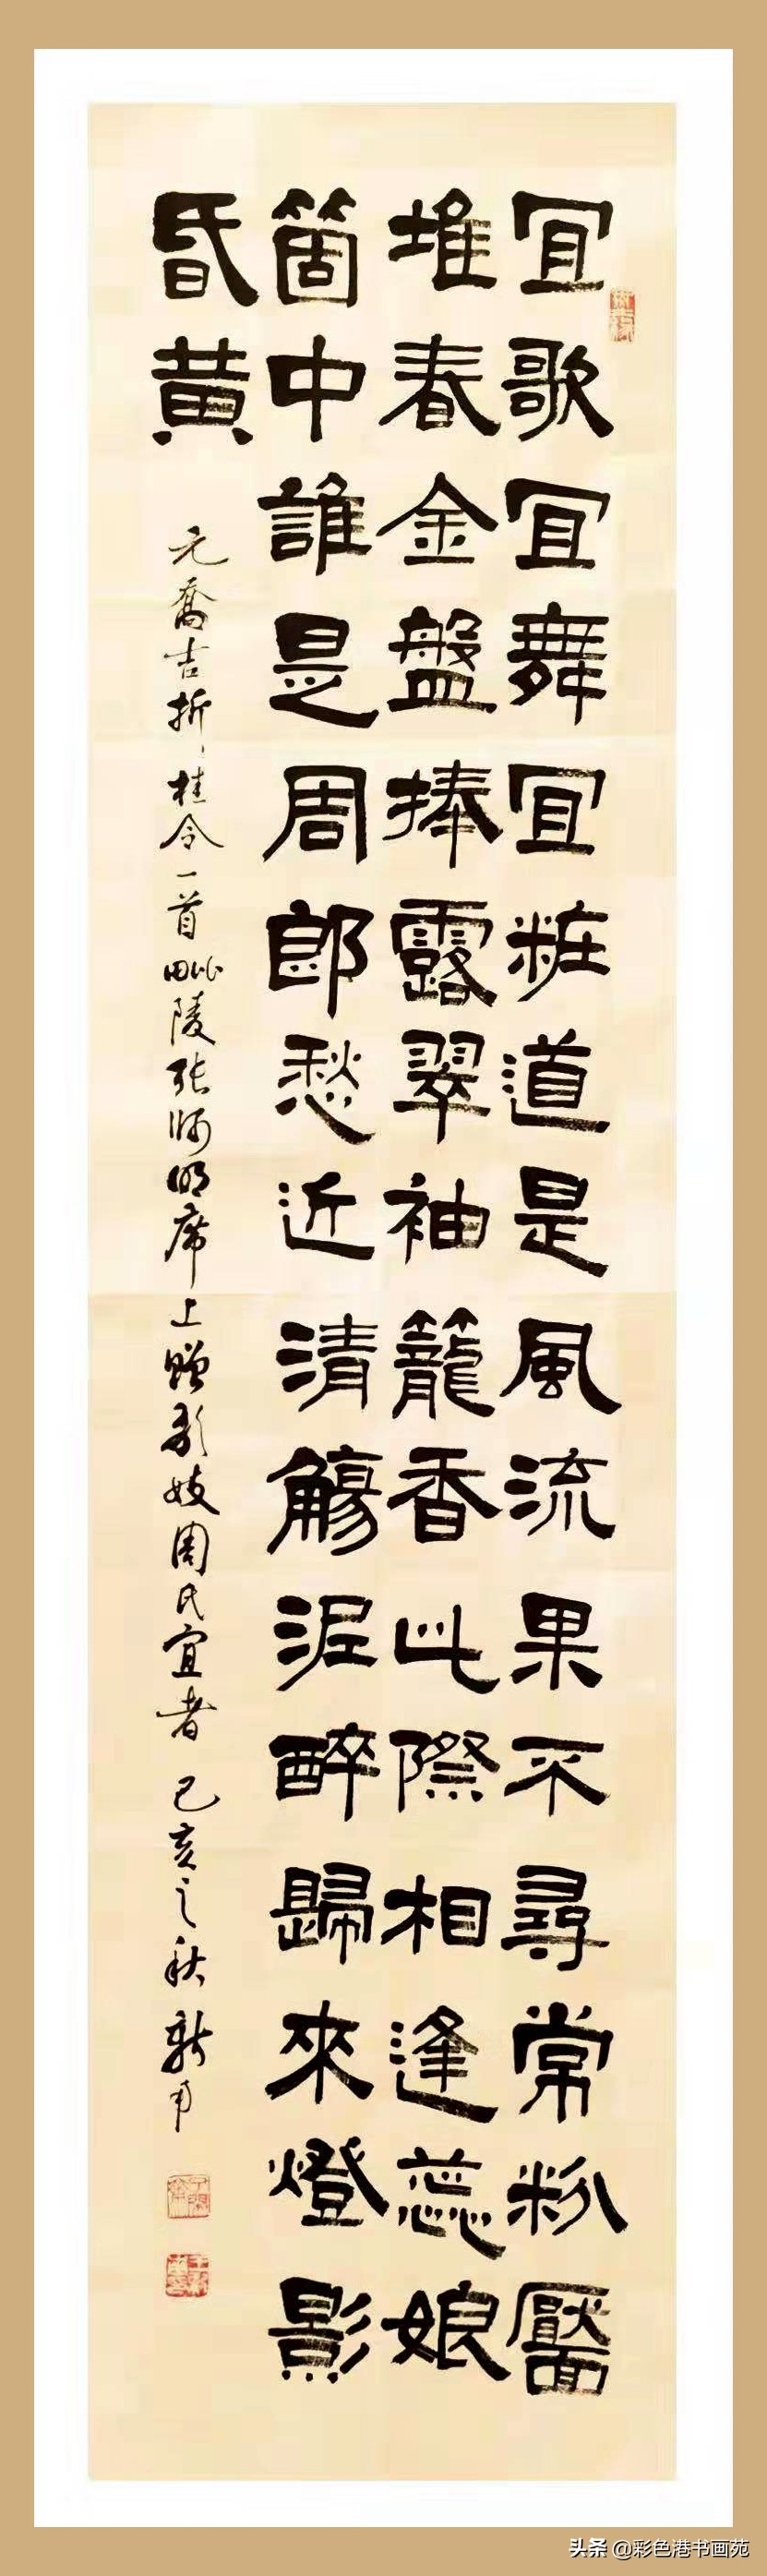 冝歌冝舞冝粧道是風流果不尋常粉靨
堆春金盤捧露翠袖籠香此際相逢蕊娘
箇中誰是周郎愁近清觴泥醉歸來燈影
昏黃
元喬吉折桂令一首毗陵張師明席上贈歌妓周氏宜者 己亥之秋新
头条 @彩色港书画苑